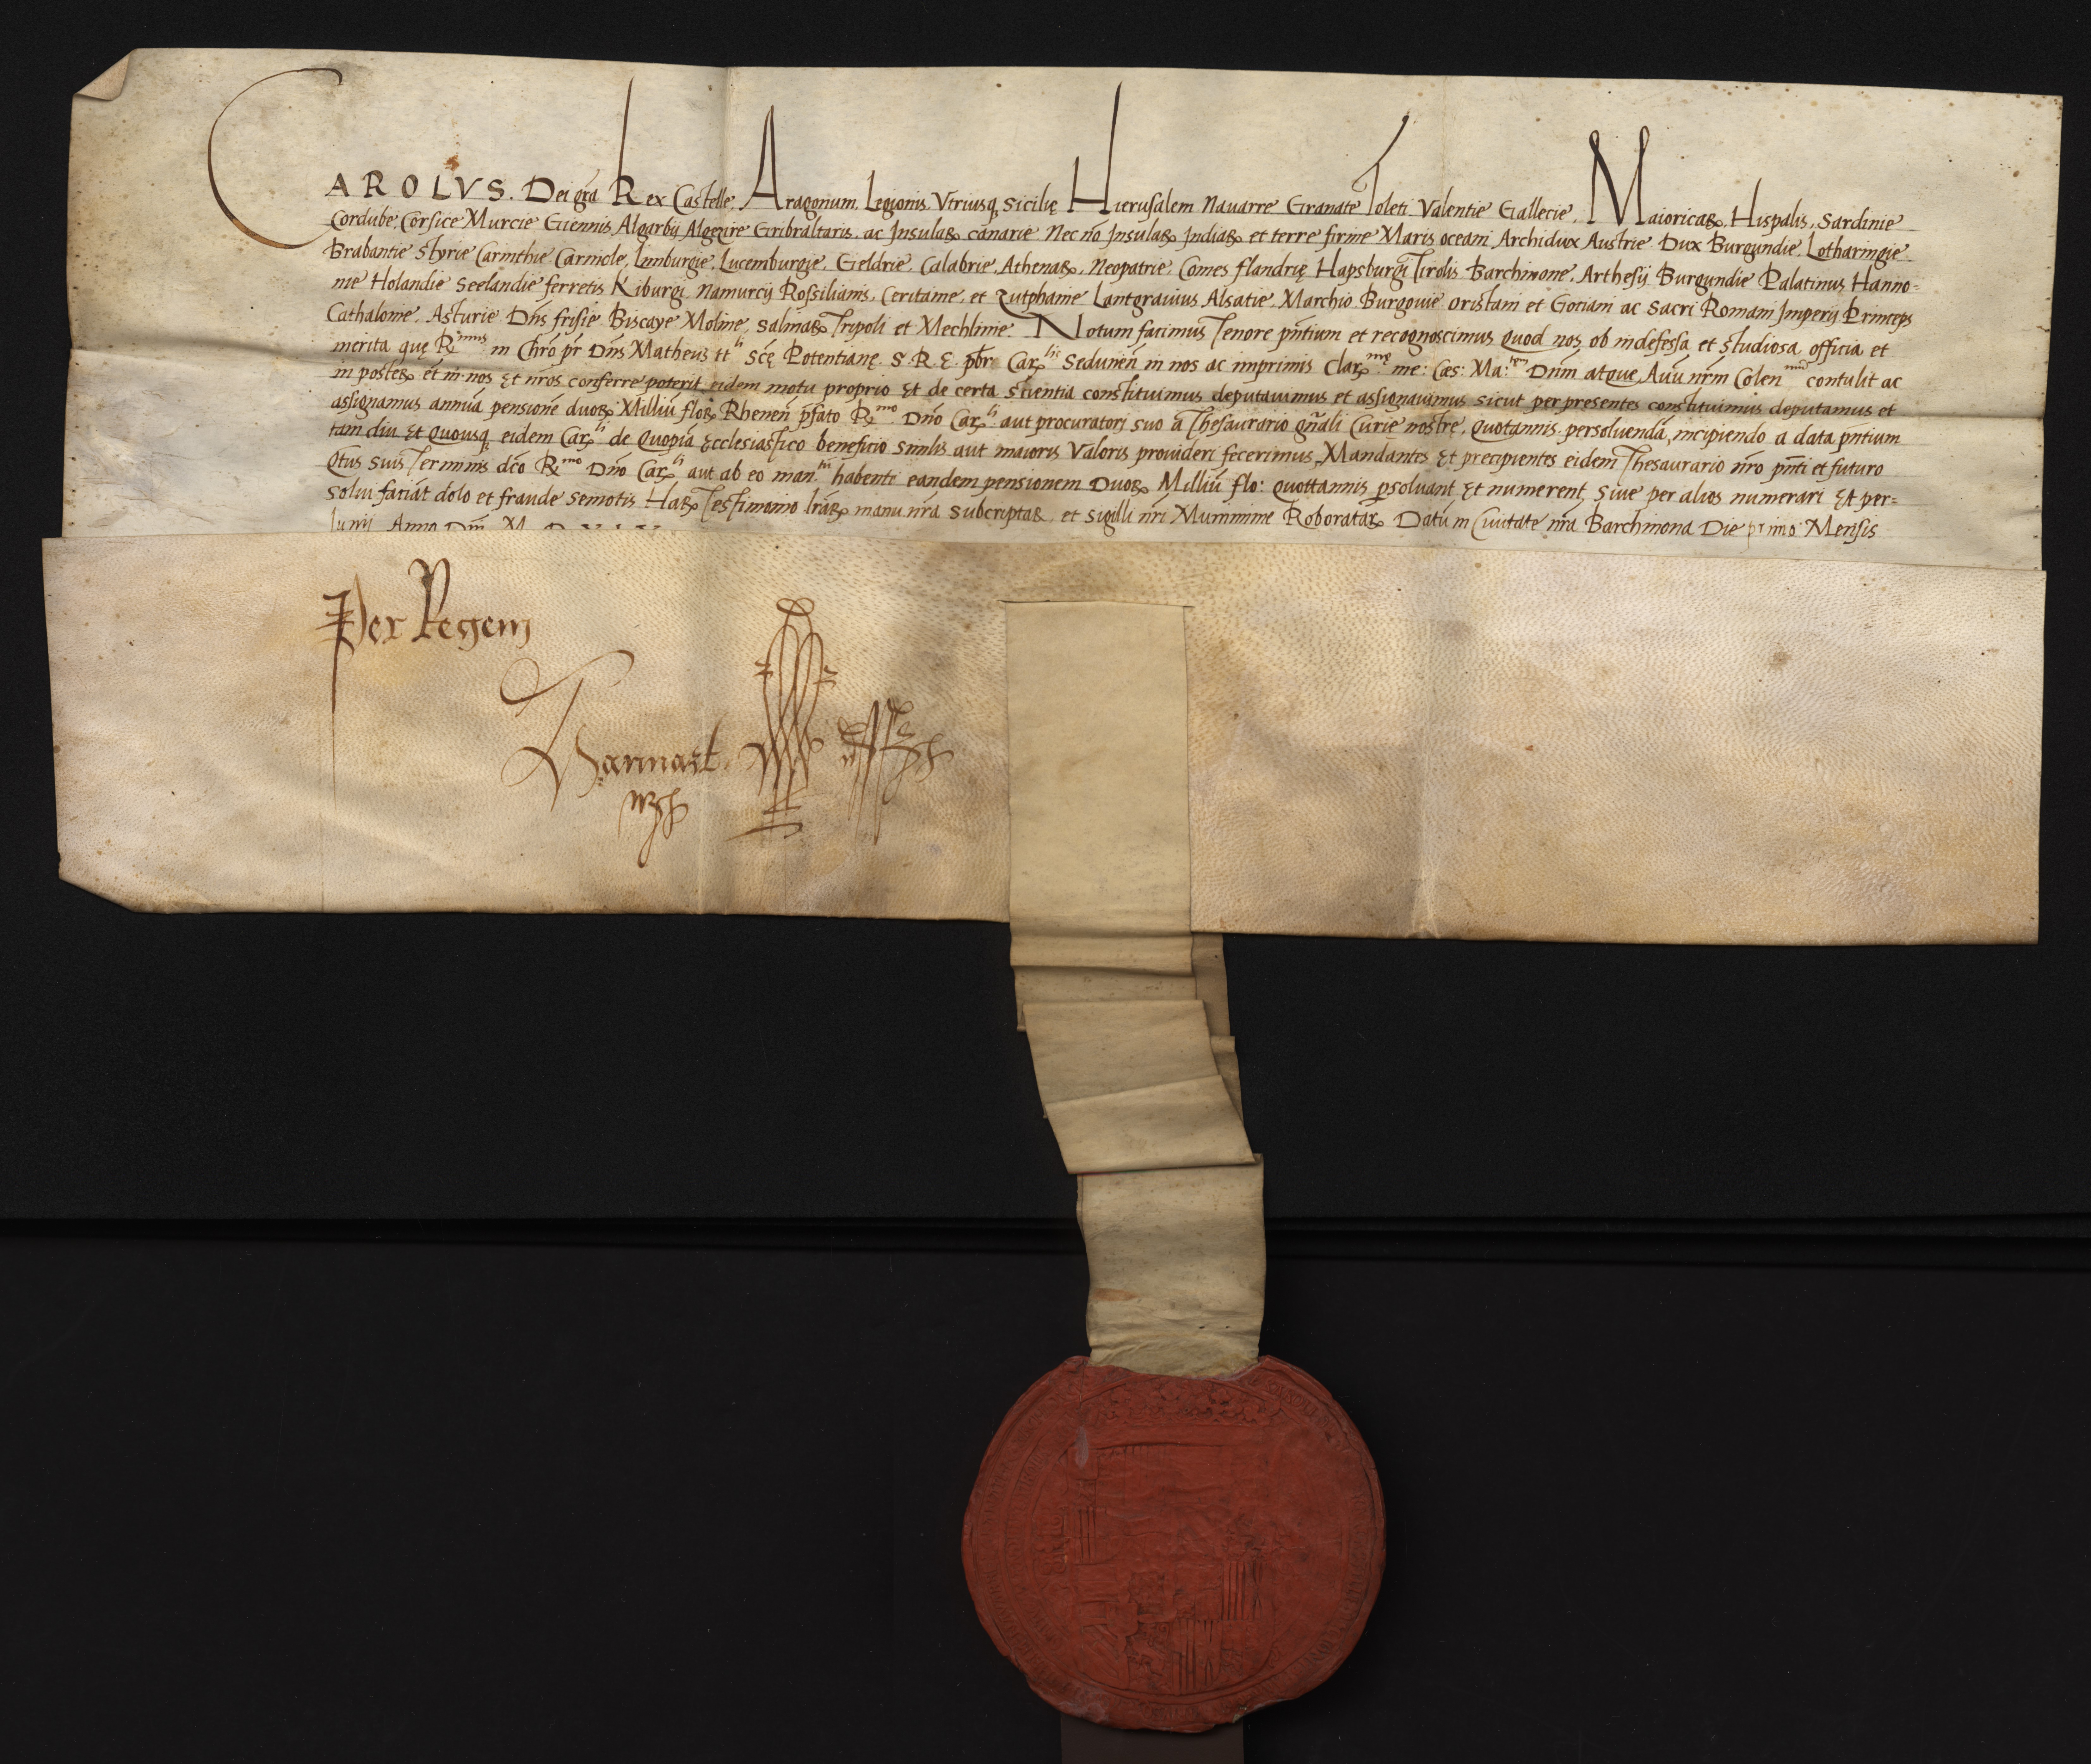 CAROLVS. Dei grã Rex Castelle. Aragonum. Legionis. Vtriusq̧ Sicilię Hierusalem Nauarre Granate Toleti Valentie Gallecie. Maioricaꝝ. Hispalis. Sardinie
Cordube. Corsice Murcie Giennis Algarbij Algezire Gribraltaris. ac Insulaꝝ canarie Nec nõ Insulaꝝ Indiaꝝ et terre firme Maris oceani Archidux Austrie Dux Burgundie. Lotharingie
Brabantie Styrie Carinthie Carniole. Limburgie. Lucemburgie. Gieldrie. Calabrie. Athenaꝝ. Neopatrie. Comes flandrię Hapsburgi Tirolis Barchinone. Arthesij Burgundie Palatinus Hanno=
nie Holandie Seelandie ferretis Kiburgi Namurcij Rossilianis. Ceritanie. et Zutphanie Lantgrauius Alsatie. Marchio Burgouie oristani et Gotiani ac Sacri Romani Imperij Princeps
Cathalonie. Asturie Dñs frisie Biscaye Moline. Salinaꝝ Tripoli et Mechlinie. Notum facimus Tenore pñtium et recognoscimus quod nos ob indefessa et studiosa officia et
merita quę R.mus in Chrõ pr̃ Dñs Matheus tt.li Scę Potentianę. S. R. E. pbr Carꝝ.lis Sedunen̄ in nos ac imprimis Clarꝝ.mę me: Cæs: Ma:tem Dñm atque Auũ nr̃m Colen.mũ contulit ac
in posteꝝ et in nos Et nr̃os conferre poterit eidem motu proprio Et de certa scientia constituimus deputauimus et assignauimus sicut per presentes constituimus deputamus et
assignamus annuã pensionẽ duoꝝ Milliũ floꝝ Rhenen̄ p̃fato R.mo Dño Carꝝ.li aut procuratori suo a Thesaurario gñali Curie nostrę. quotannis persoluendã incipiendo a data pñtium
tam diu Et quousq̧ eidem Carꝝ.li de quopiã Ecclesiastico beneficio similis aut maioris Valoris prouideri fecerimus. Mandantes Et precipientes eidem Thesaurario nr̃o pñti et futuro
qtus suis Terminis dc̃o R.mo Dño Carꝝ.li aut ab eo man.tũ habenti eandem pensionem Duoꝝ Milliũ flo: quottannis ꝑsoluant Et numerent Siue per alios numerari Et per=
solui faciãt dolo et fraude semotis Haꝝ Testimonio lr̃aꝝ manu nr̃a subcriptaꝝ. et Sigilli nr̃i Munimine Roborataꝝ Datũ in Ciuitate nr̃a Barchinona Die primo Mensis
Iunij Anno Dñi M D X I X
Per Regem
Hannart